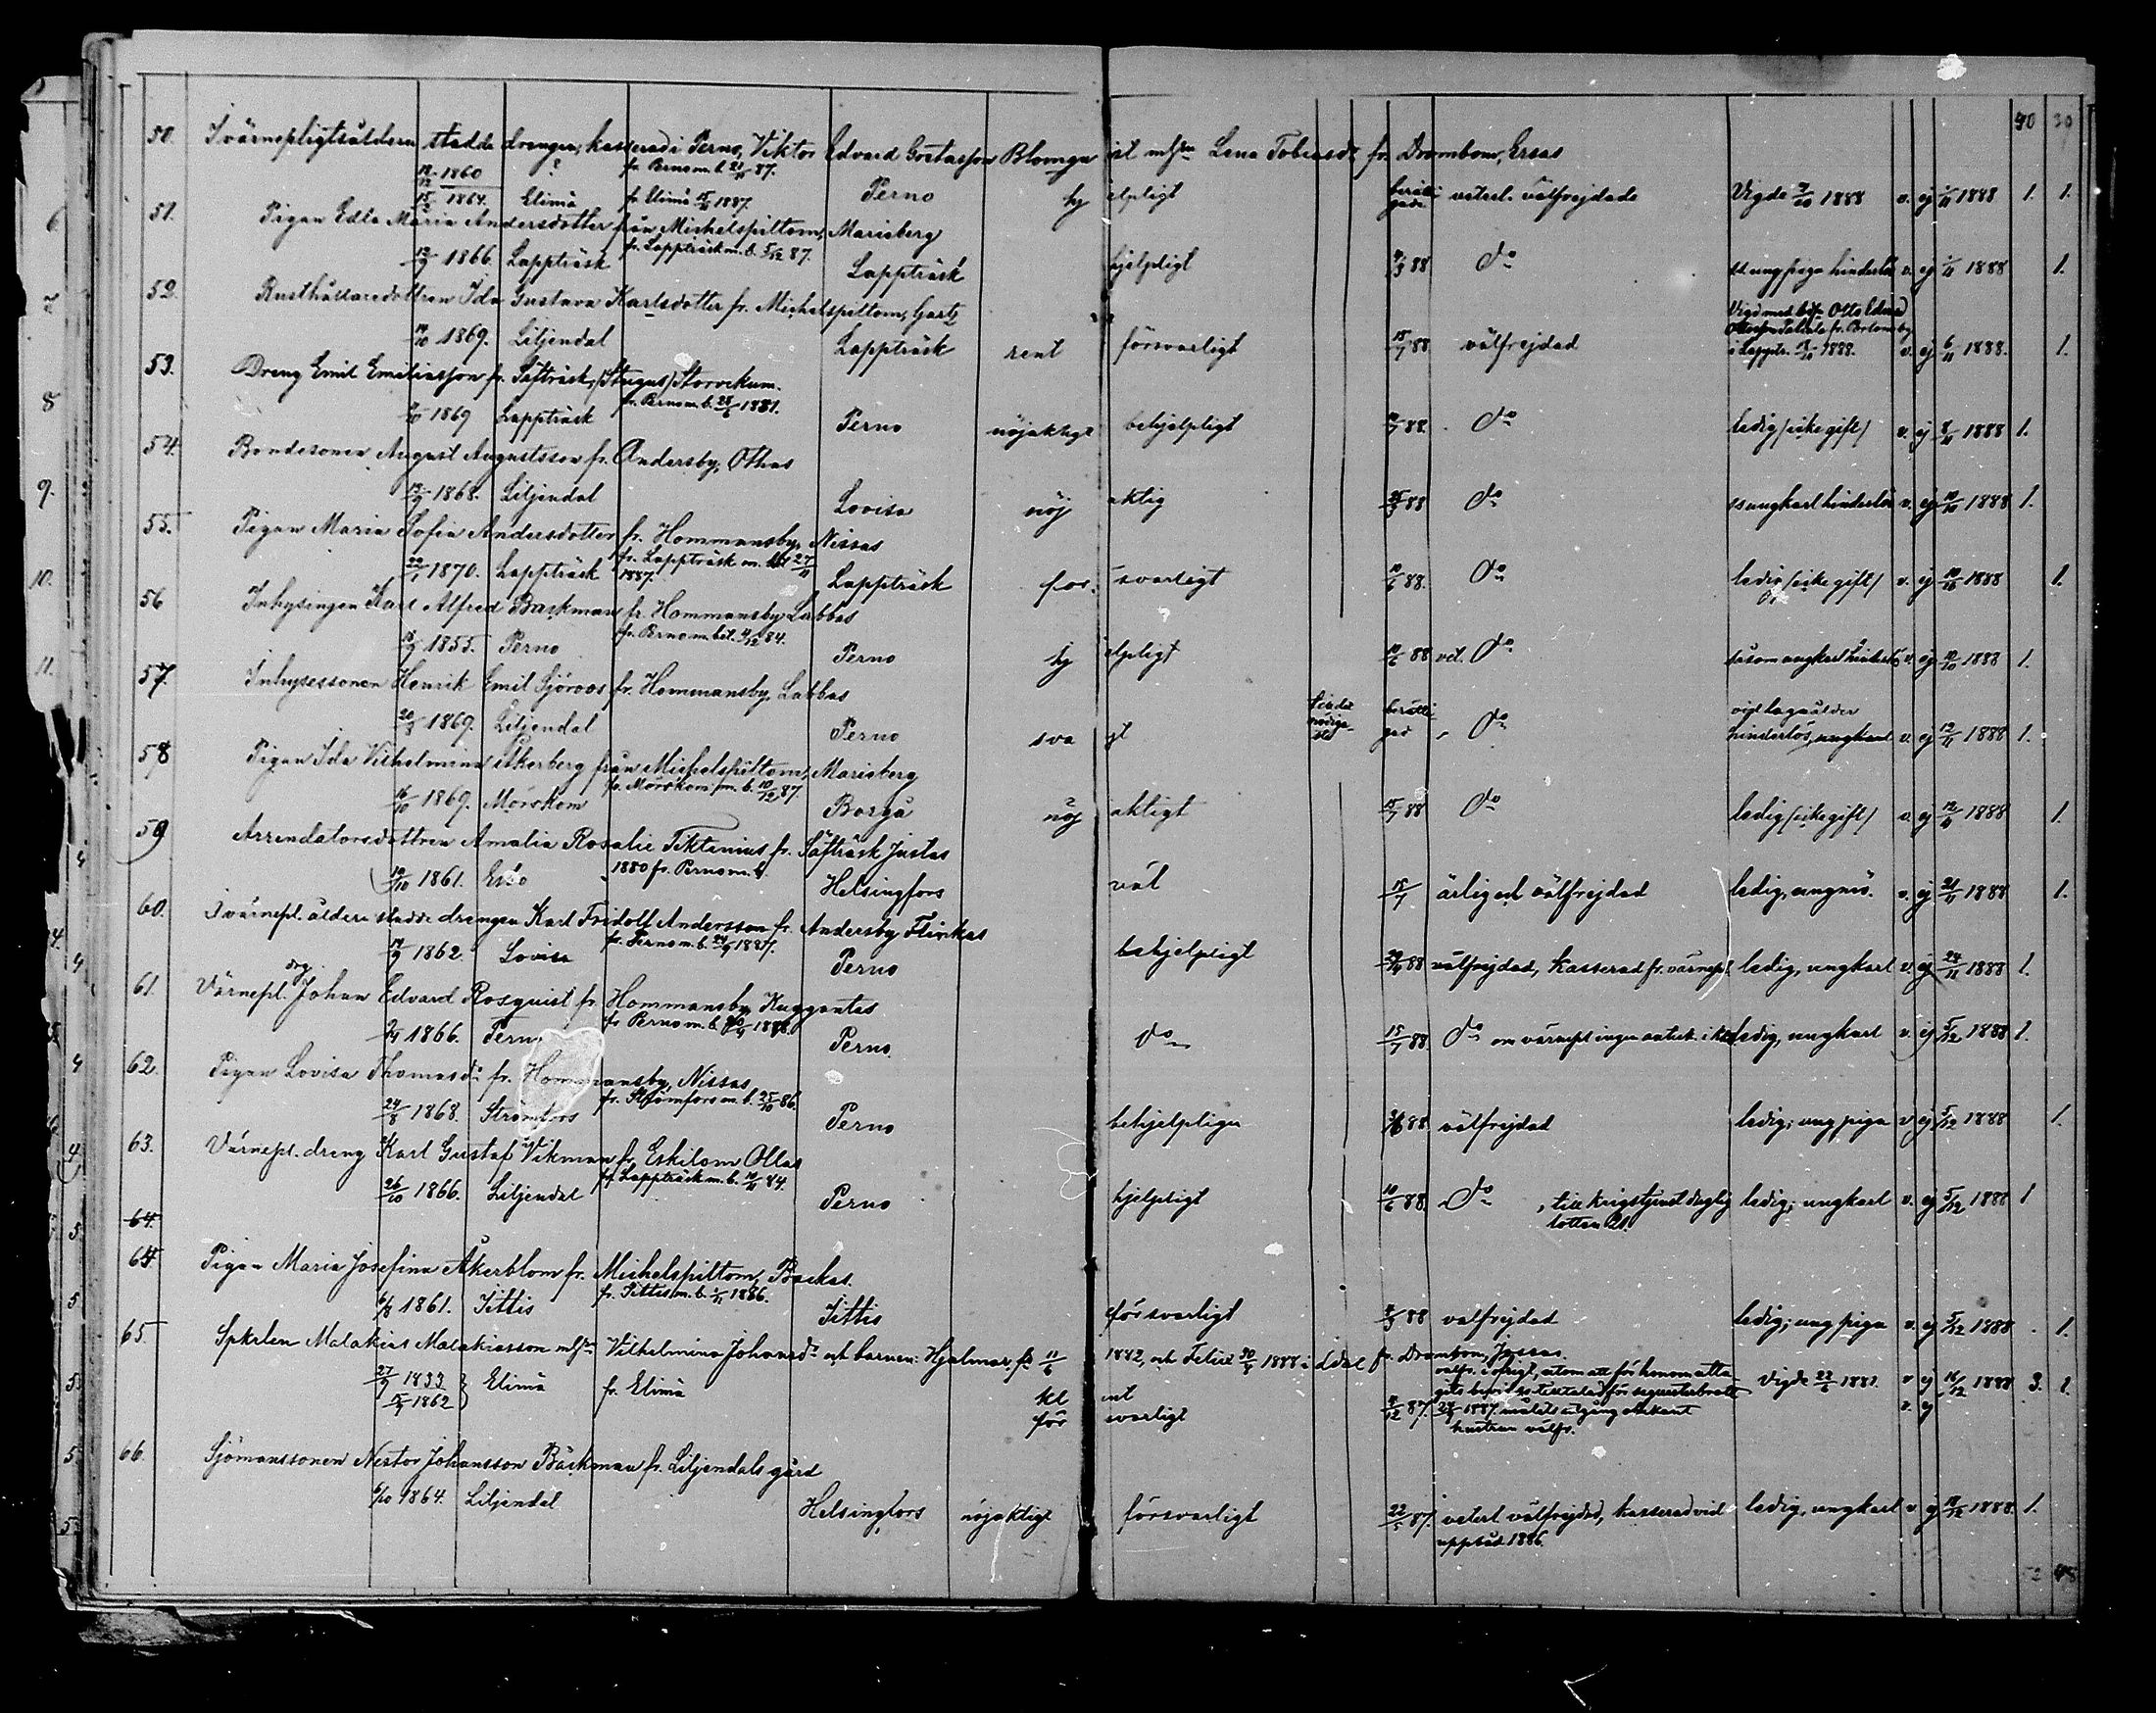 40 30
50. I värnepligtsåldern stadde drengen, kasserad i Perno, Viktor Edvard Gustafsson Blomqvist m hu Lena Tobiasdr fr. Drombom, Ersas
1860 ? fr. Perno m. b. 87.
15/2 1864. Elimä fr. Elimä 1887. Perno hjelpligt berättigade veterl. välfrejdade Vigde 1888 v. ej 1/11 1888 1. 1.
51. Pigan Edla Maria Andersdotter från Michelspiltom, Marieberg
1866 Lappträsk fr. Lappträsk m. b. 5/12 87. Lappträsk hjelpligt 88 do ss ung piga hinderlös v. ej 1/11 1888 1.
52. Rusthållaredottren Ida Gustava Karlsdotter fr. Michelspiltom, Gartz
14/10 1869. Liljendal Lappträsk rent försvarligt 15/7 88 välfrejdad Vigd med Otto Edvard i Lapptr. 1888. v. ej 6/11 1888. 1.
53. Dreng Emil Emilsson fr. Säfträsk, (Stugus) Storrekum.
1869 Lappträsk fr. Perno m. b. 28/6 1881. Perno nöjaktigt behjelpligt 88. do ledig (icke gift) v. ej 8/11 1888 1.
54. Bondesonen August Augustsson fr. Andersby, Othas
1868. Liljendal Lovisa nöjaktig 88 do ss ungkarl hinderlös v. ej 10/10 1888 1.
55. Pigan Maria Sofia Andersdotter fr. Hommansby, Nissas
22/1 1870. Lappträsk fr. Lappträsk m. 27/11 1887. Lappträsk försvarligt 10/6 88. do ledig (icke gift) v. ej 1888 1.
56 Inhysingen Karl Alfred Backman fr. Hommansby Labbas
1855. Perno fr. Perno m. bet. 4/12 84. Perno hjelpligt 10/6 88 vet. do såsom ungkarl hinderlös v. ej 1888 1.
57. Inhysessonen Henrik Emil Sjöroos fr. Hommansby, Labbas
20/3 1869. Liljendal Perno svagt berättigad do vid laga ålder hinderlös, ungkarl v. ej 12/11 1888 1.
58 Pigan Ida Vilhelmina Åkerberg från Michelspiltom, Marieberg
16/10 1869. Mörskom fr. Mörskom m. b. 10/12 87. Borgå nöjaktigt 15/7 88 do ledig (icke gift) v. ej 1888 1.
59 Arrendatorsdottren Amalia Rosalie Tiktinius fr. Säfträsk Justas
10/10 1861. Esbo 1880 fr. Perno m. b. Helsingfors väl 15/7 ärlig och välfrejdad ledig, ungmö. v. ej 21/11 1888 1.
60. I värnepl. åldern stadde drengen Karl Fridolf Andersson fr. Andersby Flinkas
1862. Lovisa fr. Perno m. b. 1887. Perno behjelpligt 88 välfrejdad, Kasserad fr. värnepl. ledig, ungkarl v. ej 24/11 1888 1.
61. Värnepl. drg Johan Edvard Rosqvist fr. Hommansby, Kuggontas
1866. Perno fr Perno m. b. 1888. Perno do 15/7 88. do om värnepl ingen anteckn. i ledig, ungkarl v. ej 5/12 1888 1.
62. Pigan Lovisa Thomasdr fr. Hommansby, Nissas
24/8 1868. Strömfors fr. Strömfors m. b. 25/10 86. Perno behjelpligen 88 välfrejdad ledig; ung piga v ej 5/12 1888 1.
63. Värnepl. dreng Karl Gustaf Vikman fr. Eskilom Ollas
26/10 1866. Liljendal fr Lappträsk m. b. 84. Perno hjelpligt 10/6 88. do, till krigstjenst duglig lotten 21. ledig; ungkarl v. ej 5/12 1888 1
64.
64 Pigan Maria Josefina Åkerblom fr. Michelspiltom, Backas.
6/8 1861. Iittis fr. Iittis m. b. 1886. Iittis försvarligt 88 välfrejdad ledig; ung piga v. ej 5/12 1888. 1.
65. Spkrlen Malakias Malakiasson m hu Vilhelmina Johansdr och barnen: Hjalmar, f. 11/6 1882, och Felix 30/5 1888 i Ldal fr. Drombom, Jossas.
27/9 1833 } Elimä fr. Elimä klent 87. välfr. i öfrigt, utom att för honom Vigde 23/6 1881. v ej 16/12 1888 3. 1.
1862 försvarligt 1887. målets utgång obekant hustrun välfr. v. ej
66. Sjömanssonen Nestor Johansson Bäckman fr. Liljendals gård
6/10 1864. Liljendal Helsingfors nöjaktigt försvarligt 22/5 87. veterl välfrejdad, kasserad vid uppbåd 1886. ledig, ungkarl v ej 1888. 1.